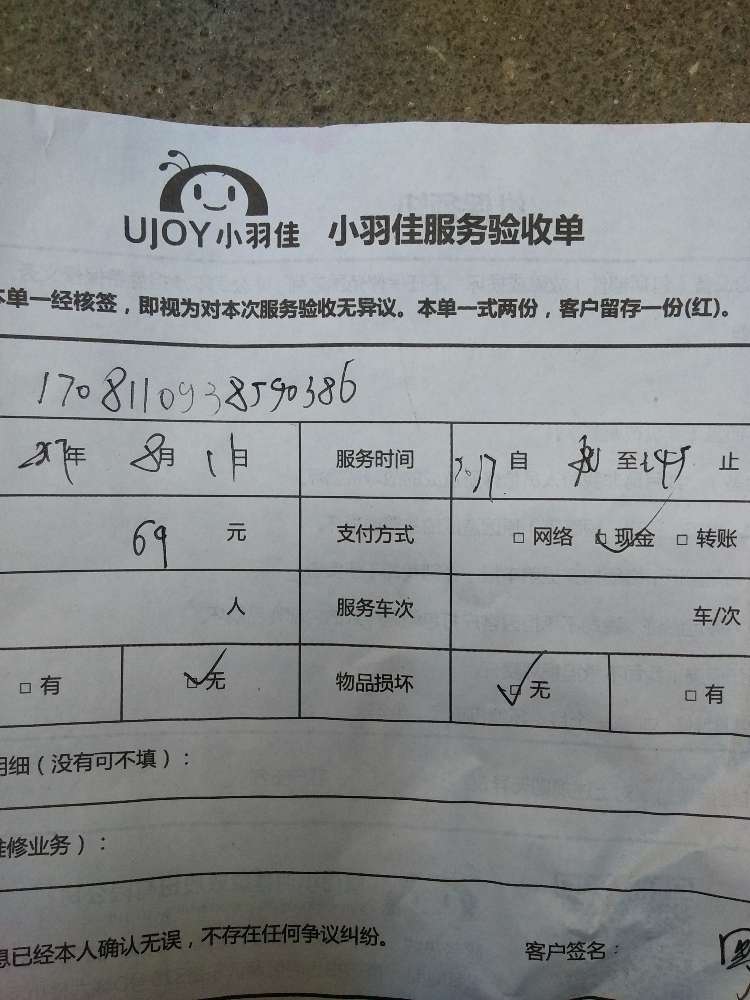 UJOY小羽佳 小羽佳服务验收单
本单一经核签，即视为对本次服务验收无异议。本单一式两份，客户留存一份(红)。
1708110938590386
2017年 8月 11日 服务时间 自 至 止
69 元 支付方式 □ 网络 □ 现金 □ 转账
人 服务车次 车/次
□ 有 □ 无 物品损坏 □ 无 □ 有
明细（没有可不填）：
维修业务）：
息已经本人确认无误，不存在任何争议纠纷。 客户签名：